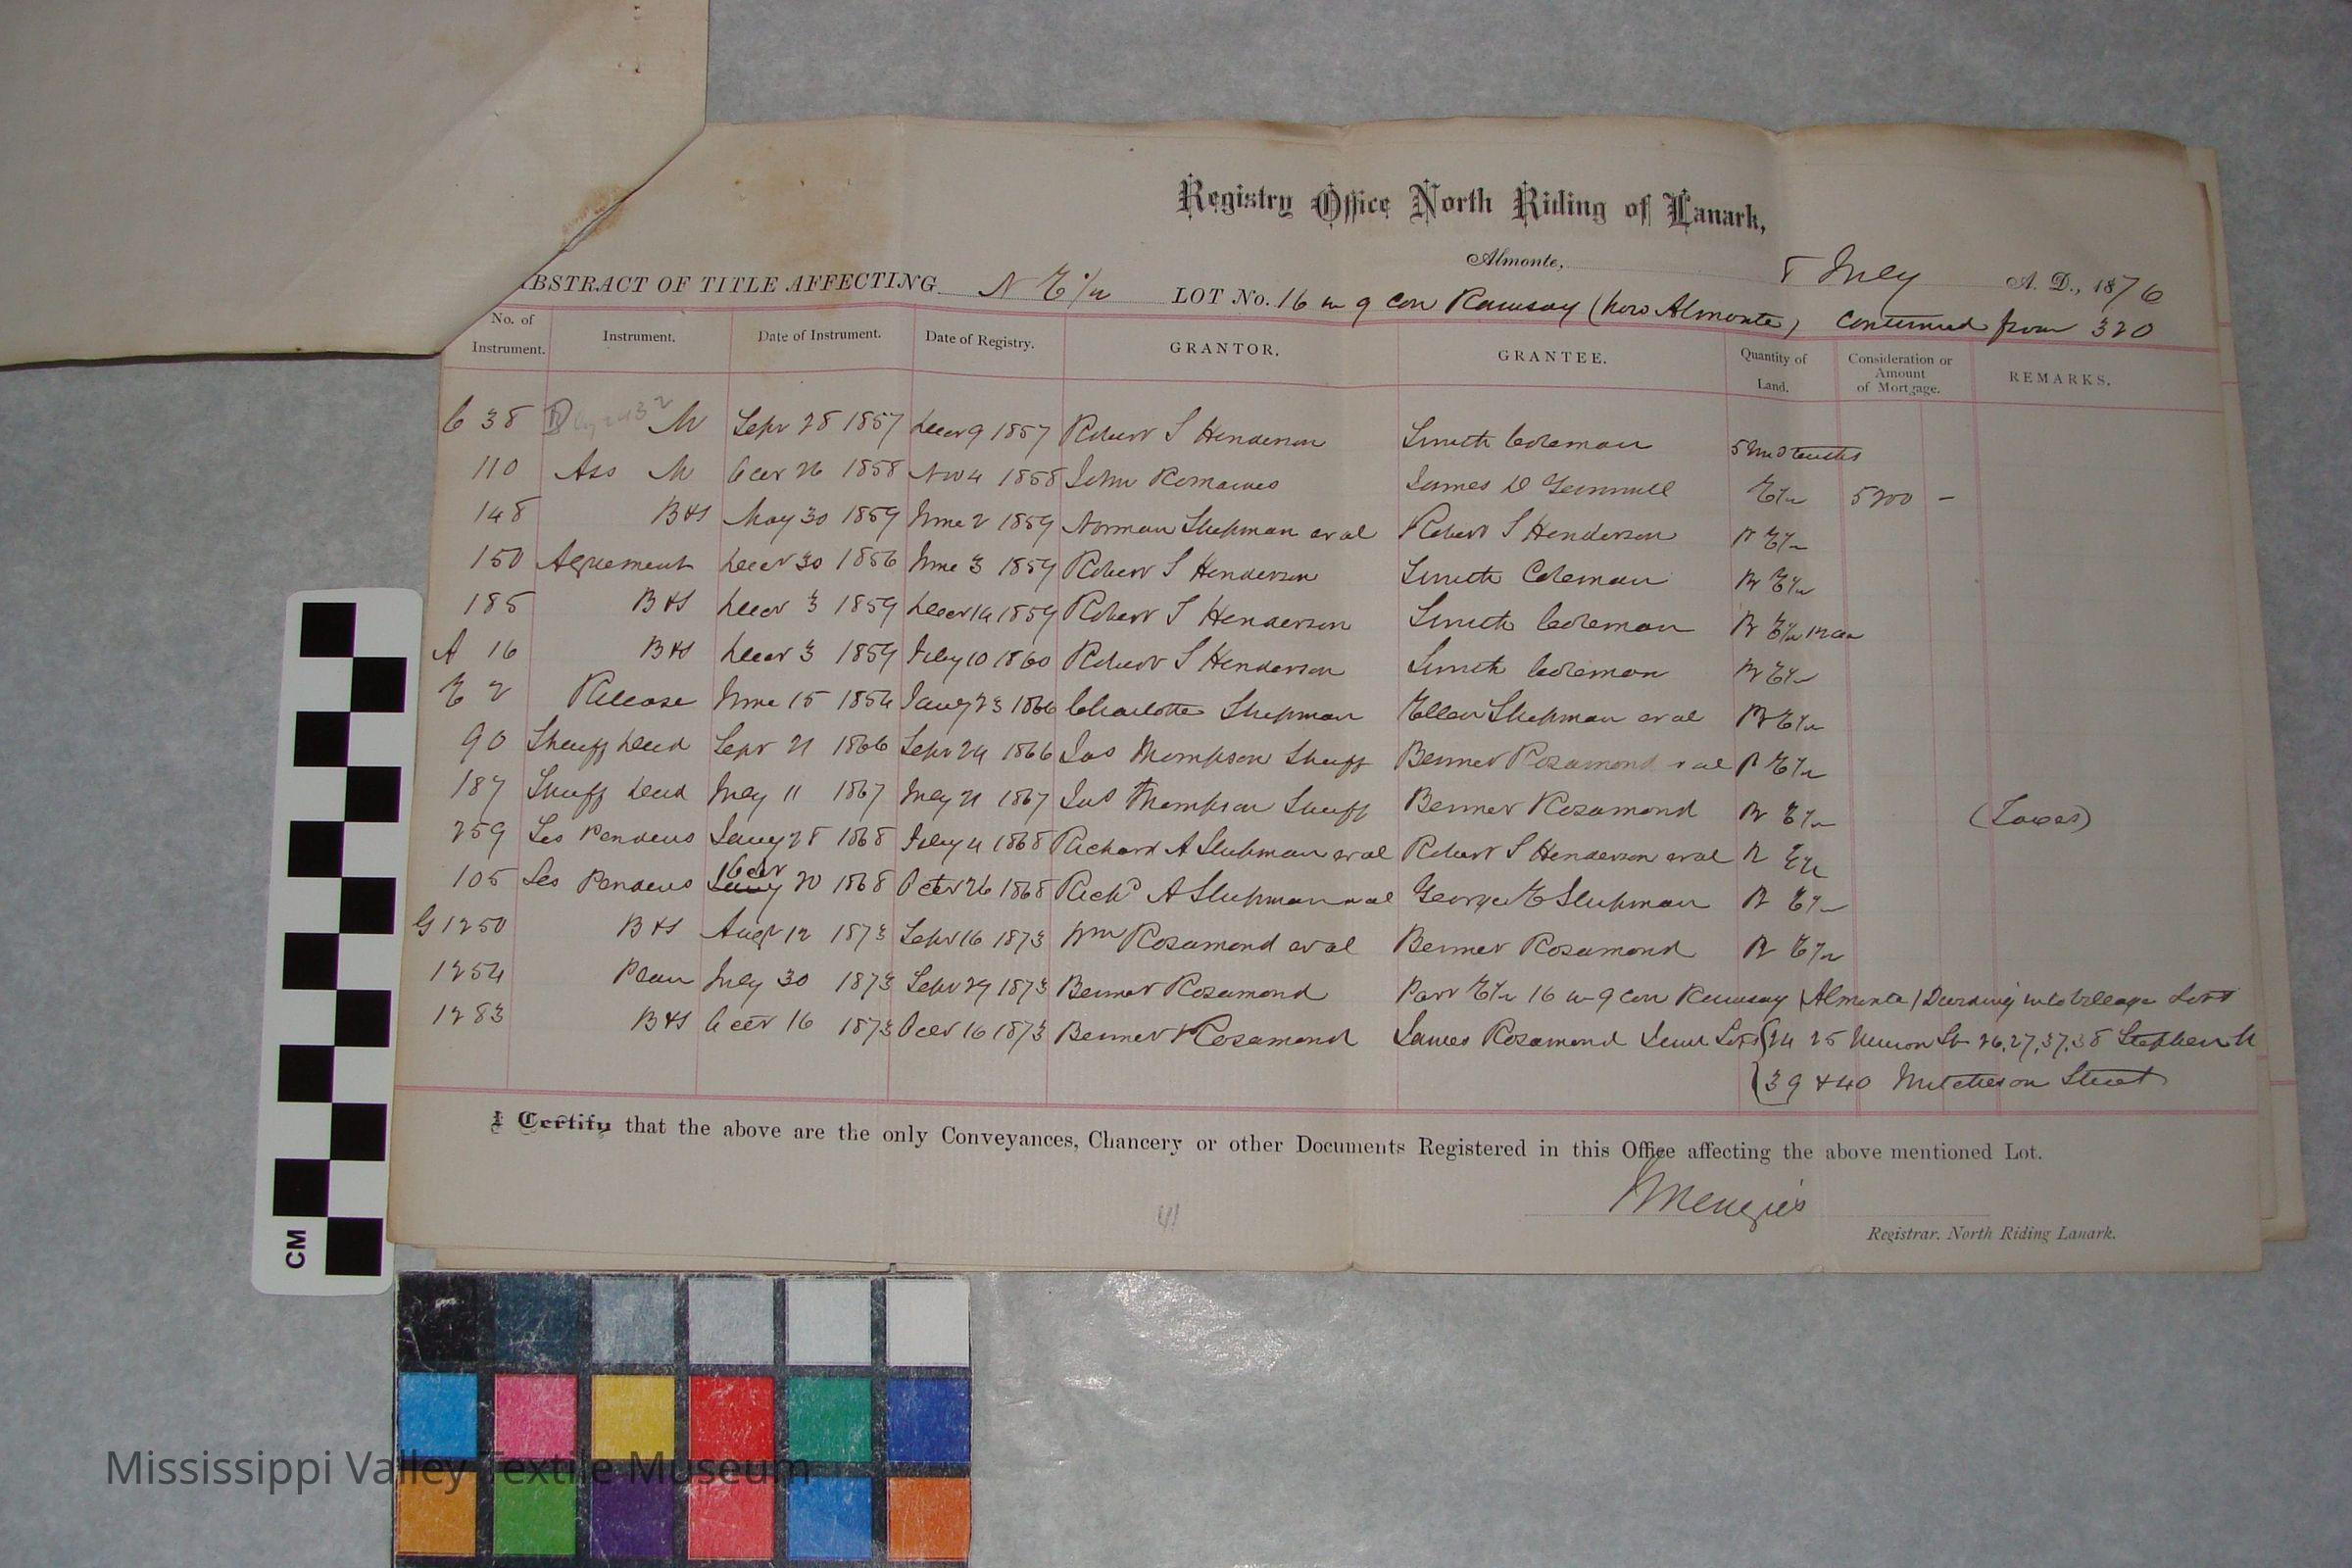 Registry Office North Riding of Lanark,
Almonte, 8 July A. D., 1876
ABSTRACT OF TITLE AFFECTING N E ½ LOT No. 16 in 9 Con Ramsay (now Almonte) continued from 320
No. of Instrument. Instrument. Date of Instrument. Date of Registry. GRANTOR. GRANTEE. Quantity of Land. Consideration or Amount of Mortgage. REMARKS.
C 38 M Sept 28 1857 Decr 9 1857 Robert S Henderson Smith Coleman
110 Ass M Octr 26 1858 Nov 4 1858 John Romaines James D Gemmill E ½ 5200 –
148 B&S May 30 1859 June 2 1859 Norman Shipman et al Robert S Henderson P E ½
150 Agreement Decr 30 1856 June 3 1859 Robert S Henderson Smith Coleman Pt E ½
185 B&S Decr 3 1859 Decr 14 1859 Robert S Henderson Smith Coleman Pt E ½
A 16 B&S Decr 3 1859 Feby 10 1860 Robert S Henderson Smith Coleman Pt E ½
E 2 Release June 15 1854 Jany 23 1866 Charlotte Shipman Ellen Shipman et al Pt E ½
90 Sheriff Deed Sept 21 1866 Sept 24 1866 Jas Thompson Sheriff Bennet Rosamond et al P E ½
187 Sheriff Deed May 11 1867 May 21 1867 Jas Thompson Sheriff Bennet Rosamond Pt E ½ (Taxes)
259 Les Pendens Jany 28 1868 Feby 4 1868 Richard A Shipman et al Robert S Henderson et al Pt E ½
105 Les Pendens Octr 20 1868 Octr 26 1868 Richd A Shipman et al George E Shipman Pt E ½
G 1250 B&S Augt 12 1873 Sept 16 1873 Wm Rosamond et al Bennet Rosamond Pt E ½
1254 Plan July 30 1873 Sept 29 1873 Bennet Rosamond Part E ½ 16 in 9 Con Ramsay (Almonte) Dividing into Village Lots
1283 B&S Octr 16 1873 Octr 16 1873 Bennet Rosamond James Rosamond Junr Lots 24 25 Union St 26,27,37,38 Stephen St
39 & 40 Mitcheson Street
I Certify that the above are the only Conveyances, Chancery or other Documents Registered in this Office affecting the above mentioned Lot.
Menzies
Registrar. North Riding Lanark.
41
CM
Mississippi Valley Textile Museum